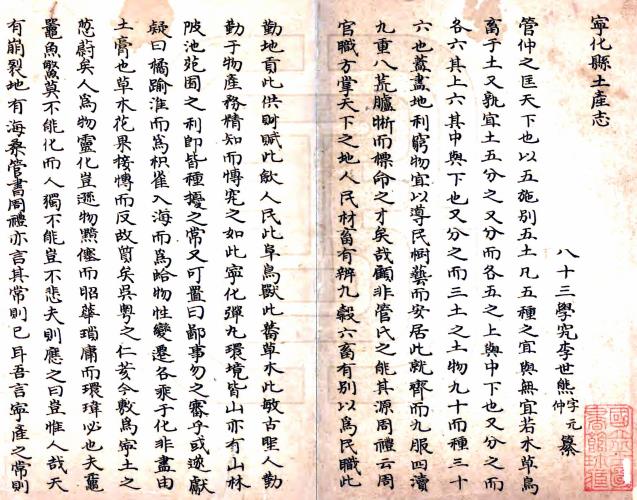 寧化縣土產志
八十三學究李世熊字元仲纂
管仲之匡天下也以五施別五土凡五種之宜與無宜若水草鳥
畜于土又孰宜土五分之又分而各五之上與中下也又分之而
各六其上六其中與下也又分之而三土之土物九十而種三十
六也蓋盡地利窮物宜以導民樹藝而安居此就齊而九服四瀆
九重八荒臚晰而標命之才矣哉顧非管氏之能其源周禮云周
官職方掌天下之地人民材畜有辨九穀六畜有別以為民職此
勤地貢此供財賦此飲人民此阜鳥獸此蕃草木此敏古聖人勤
勤于物產務精知而博究之如此寧化彈九環境皆山亦有山林
陂池苑囿之利即皆種擾之常又可置曰鄙事勿之齎乎或遂獻
疑曰橘踰淮而為枳雀入海而為蛤物性變遷各乘于化非盡由
土膏也草水花果接博而反故質矣吳粵之仁芸令敷為寧土之
蔥蔚矣人為物靈化豈遜物黠僿而昭華瑣庸而環瑋必也夫鼃
黽魚鱉莫不能化而人獨不能豈不悲夫則應之曰豈惟人哉天
有崩裂地有海桑管書周禮亦言其常則已耳吾言寧產之常則